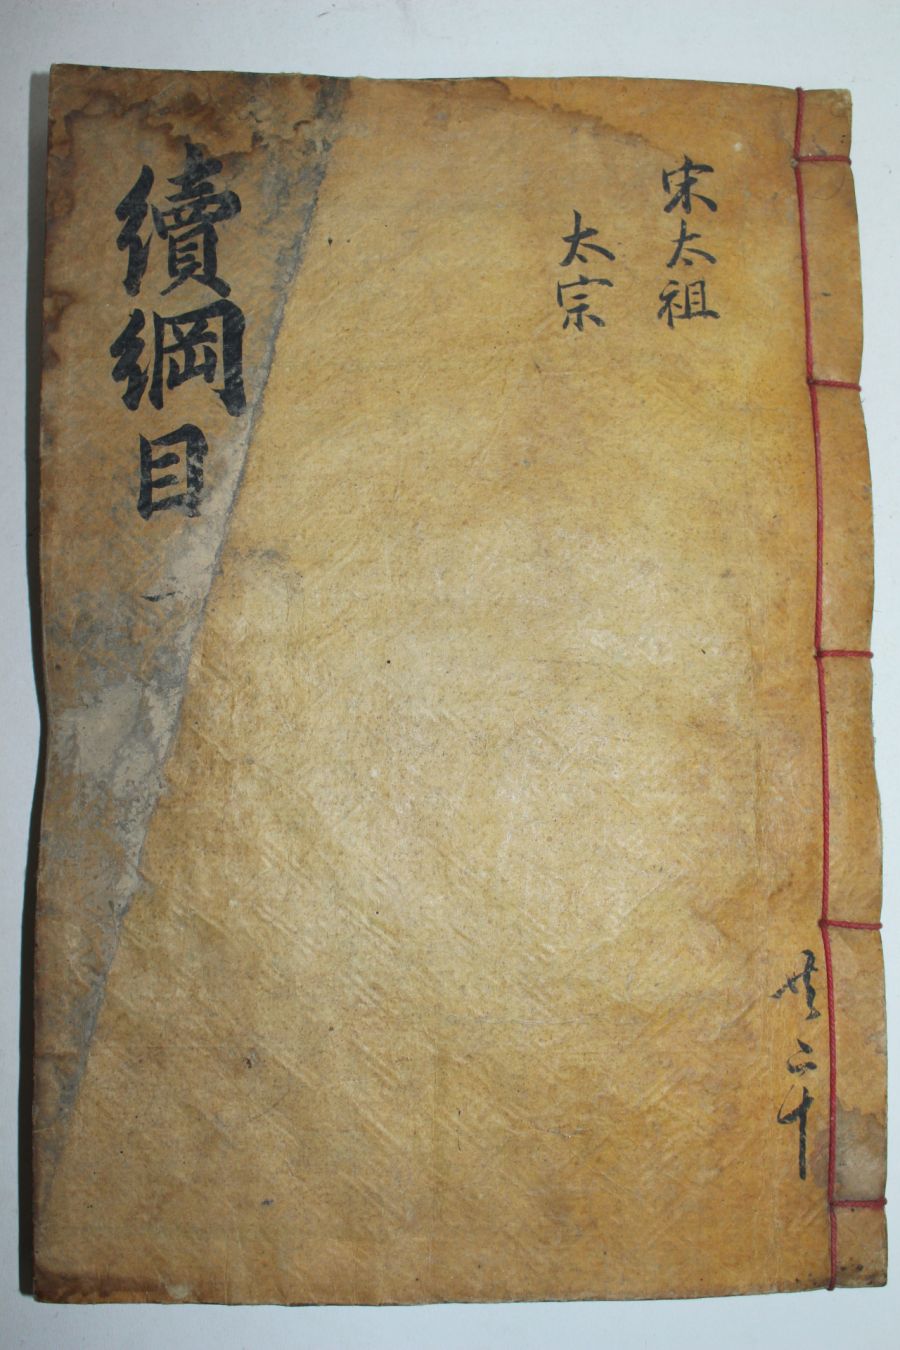 宋太祖
太宗
續綱目
共二十